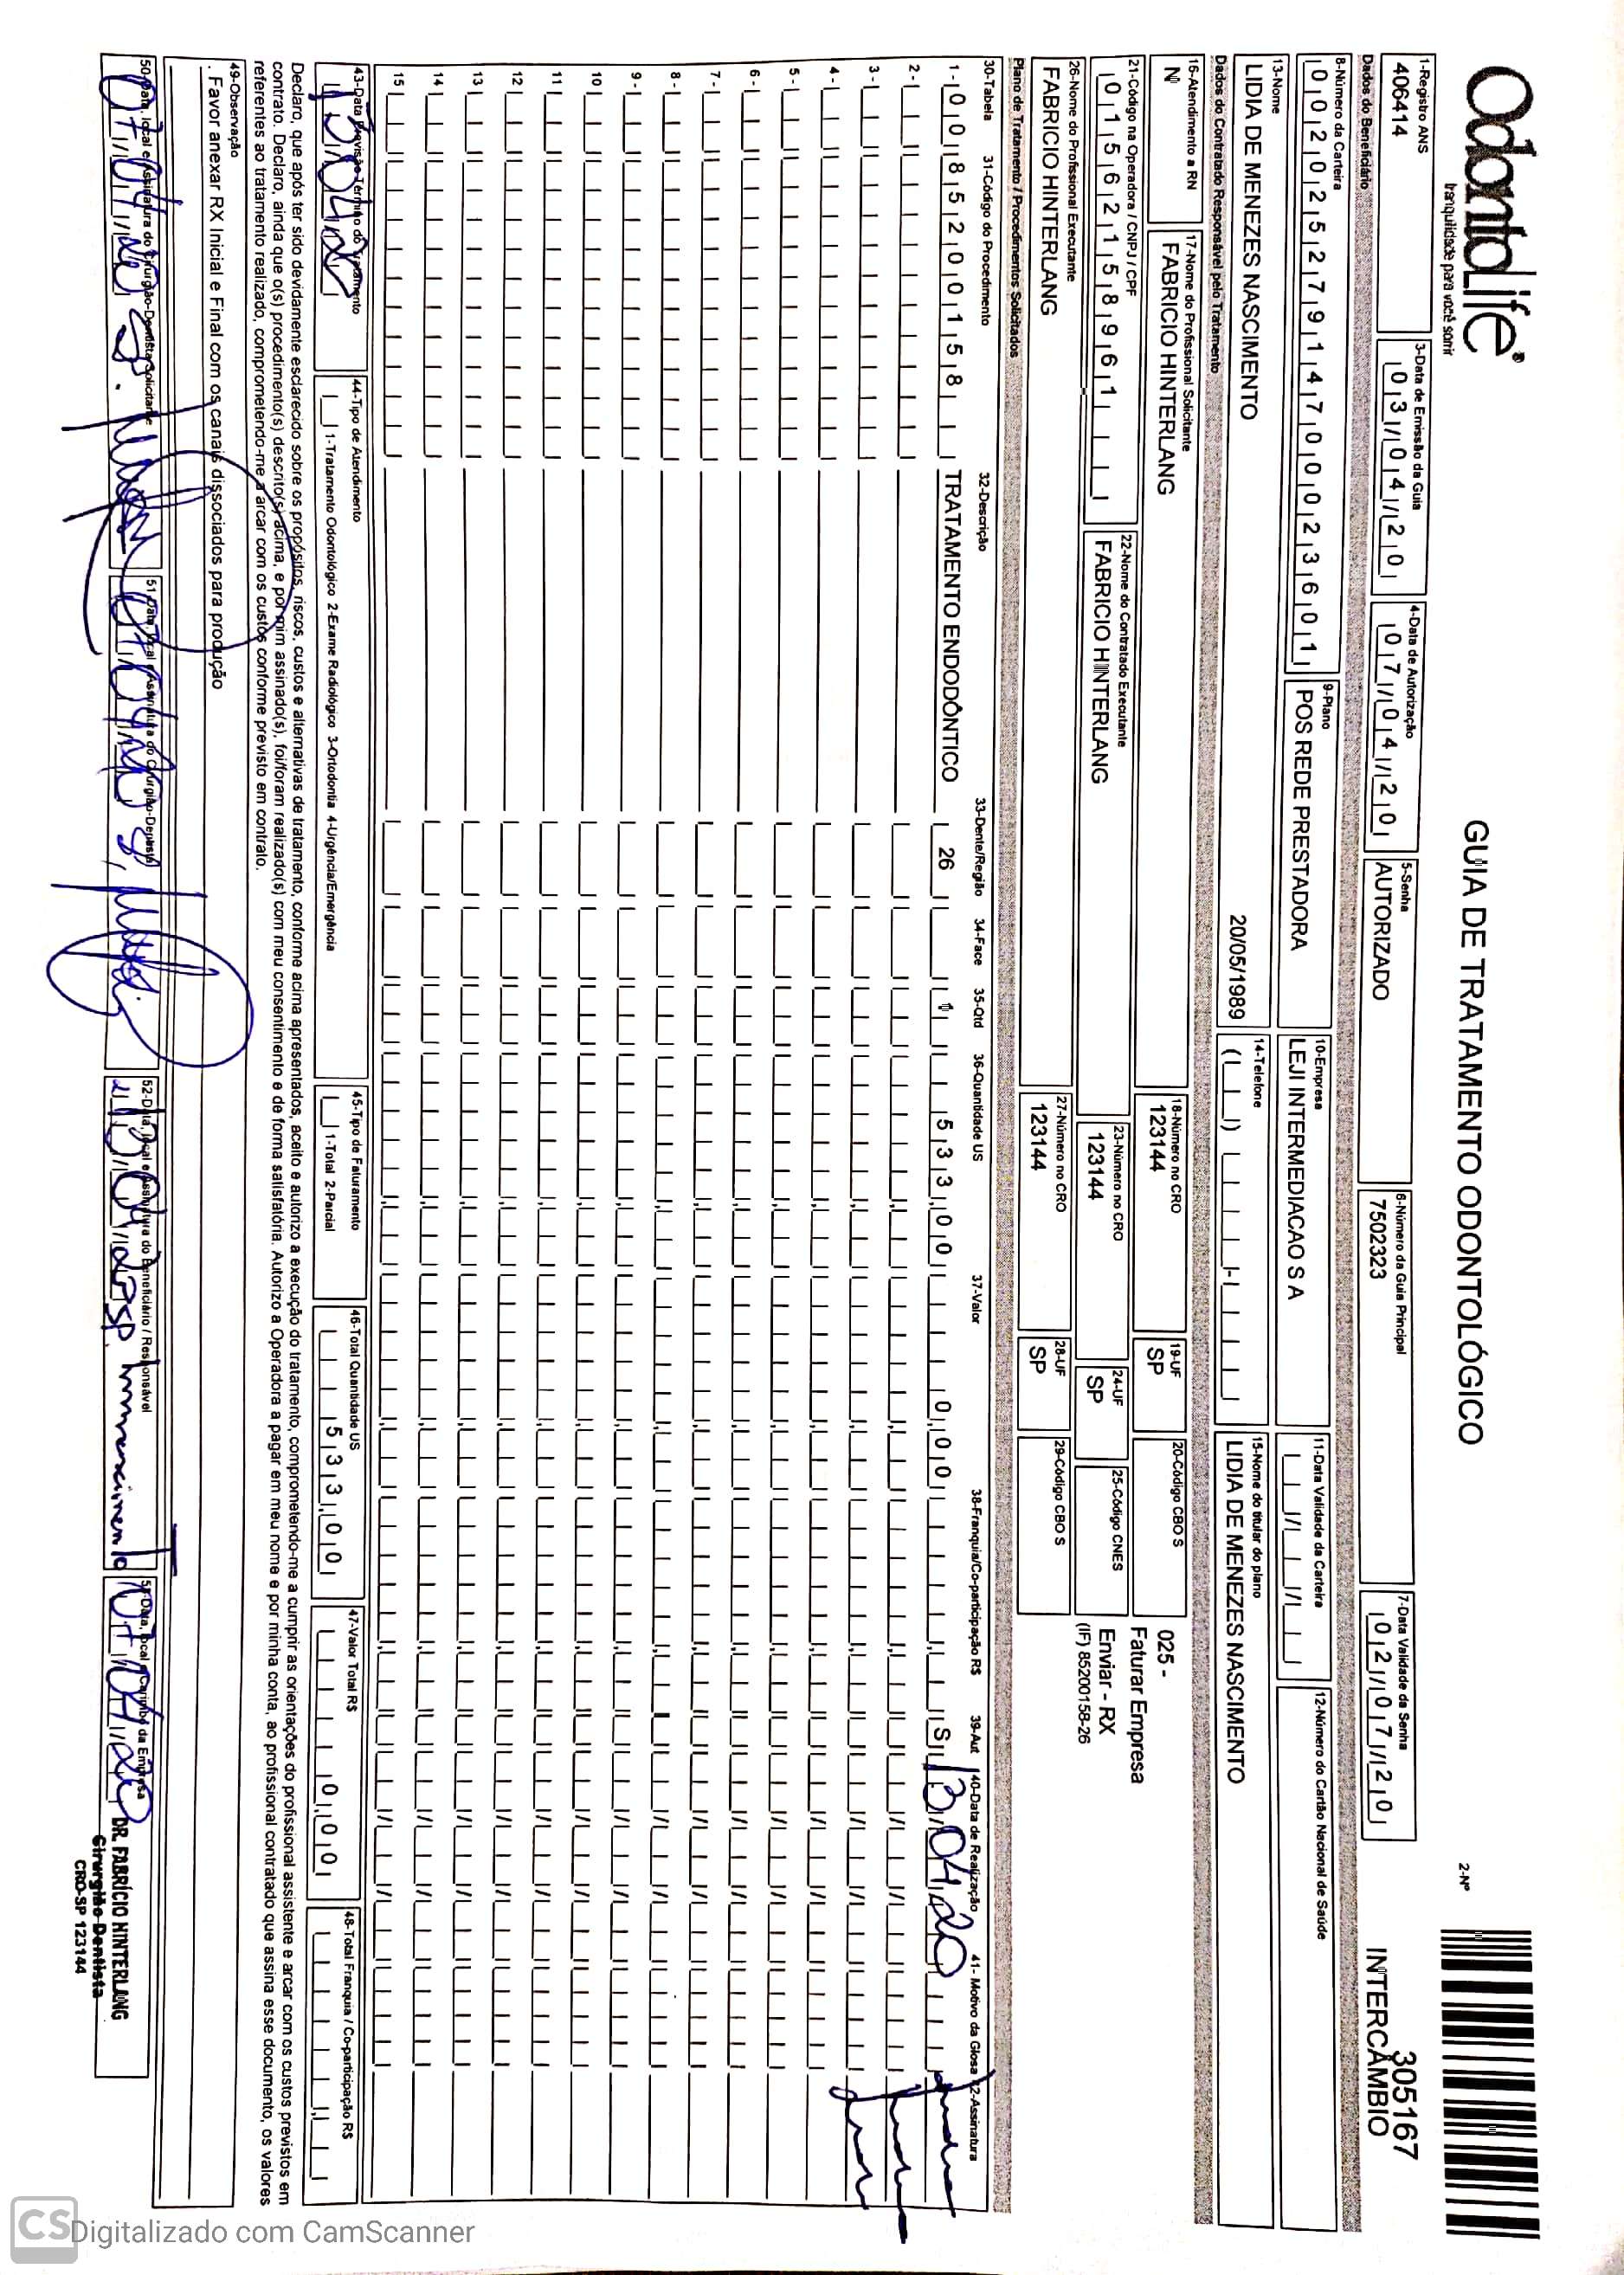 OdontoLife®
tranquilidade para você sorrir
GUIA DE TRATAMENTO ODONTOLÓGICO
2-Nº
305167
INTERCÂMBIO
1-Registro ANS
406414
3-Data de Emissão da Guia
03/04/20
4-Data de Autorização
07/04/20
5-Senha
AUTORIZADO
6-Número da Guia Principal
7502323
7-Data Validade da Senha
02/07/20
Dados do Beneficiário
8-Número da Carteira
00202527914700023601
9-Plano
POS REDE PRESTADORA
10-Empresa
LEJI INTERMEDIACAO S A
11-Data Validade da Carteira
12-Número do Cartão Nacional de Saúde
13-Nome
LIDIA DE MENEZES NASCIMENTO
20/05/1989
14-Telefone
15-Nome do titular do plano
LIDIA DE MENEZES NASCIMENTO
Dados do Contratado Responsável pelo Tratamento
16-Atendimento a RN
N
17-Nome do Profissional Solicitante
FABRICIO HINTERLANG
18-Número no CRO
123144
19-UF
SP
20-Código CBO S
025 -
Faturar Empresa
21-Código na Operadora / CNPJ / CPF
01562158961
22-Nome do Contratado Executante
FABRICIO HINTERLANG
23-Número no CRO
123144
24-UF
SP
25-Código CNES
Enviar - RX
(IF) 85200158-26
26-Nome do Profissional Executante
FABRICIO HINTERLANG
27-Número no CRO
123144
28-UF
SP
29-Código CBO S
Plano de Tratamento / Procedimentos Solicitados
30-Tabela 31-Código do Procedimento 32-Descrição 33-Dente/Região 34-Face 35-Qtd 36-Quantidade US 37-Valor 38-Franquia/Co-participação R$ 39-Aut 40-Data de Realização 41- Motivo da Glosa 42-Assinatura
1 - 00 85200158 TRATAMENTO ENDODÔNTICO 26 1 533,00 0,00 S 13/04/20
2 -
3 -
4 -
5 -
6 -
7 -
8 -
9 -
10
11
12
13
14
15
43-Data Previsão Término do Tratamento
13/04/20
44-Tipo de Atendimento
1-Tratamento Odontológico 2-Exame Radiológico 3-Ortodontia 4-Urgência/Emergência
45-Tipo de Faturamento
1-Total 2-Parcial
46-Total Quantidade US
533,00
47-Valor Total R$
0,00
48-Total Franquia / Co-participação R$
Declaro, que após ter sido devidamente esclarecido sobre os propósitos, riscos, custos e alternativas de tratamento, conforme acima apresentados, aceito e autorizo a execução do tratamento, comprometendo-me a cumprir as orientações do profissional assistente e arcar com os custos previstos em
contrato. Declaro, ainda que o(s) procedimento(s) descrito(s) acima, e por mim assinado(s), foi/foram realizado(s) com meu consentimento e de forma satisfatória. Autorizo a Operadora a pagar em meu nome e por minha conta, ao profissional contratado que assina esse documento, os valores
referentes ao tratamento realizado, comprometendo-me a arcar com os custos conforme previsto em contrato.
49-Observação
. Favor anexar RX Inicial e Final com os canais dissociados para produção
50-Data, local e Assinatura do Cirurgião-Dentista Solicitante
07/04/20 SP.
51-Data, local e Assinatura do Cirurgião-Dentista
07/04/20 SP,
52-Data, local e Assinatura do Beneficiário / Responsável
13/04/20 SP
53-Data, local e Carimbo da Empresa
07/04/20
DR. FABRÍCIO HINTERLANG
Cirurgião-Dentista
CRO-SP 123144
CS Digitalizado com CamScanner